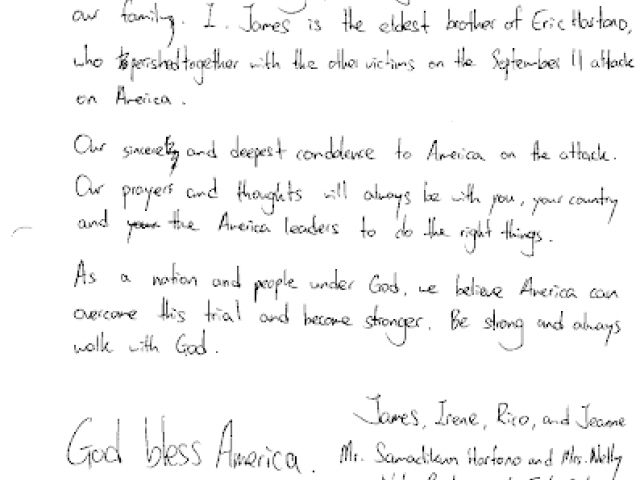 our family. I. James is the eldest brother of Eric Hartono,
who perished together with the other victims on the September 11 attack
on America.
Our sincerely and deepest condolence to America on the attack.
Our prayers and thoughts will always be with you, your country
and your the America leaders to do the right things.
As a nation and people under God, we believe America can
overcome this trial and become stronger. Be strong and always
walk with God.
James, Irene, Rico, and Jeanne
God bless America.
Mr. Samadikun Hartono and Mrs. Nelly